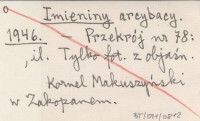 Imieniny arcybacy.
1946. — Przekrój nr 78:
il. Tylko fot. z objaśn.
Kornel Makuszyński
w Zakopanem.